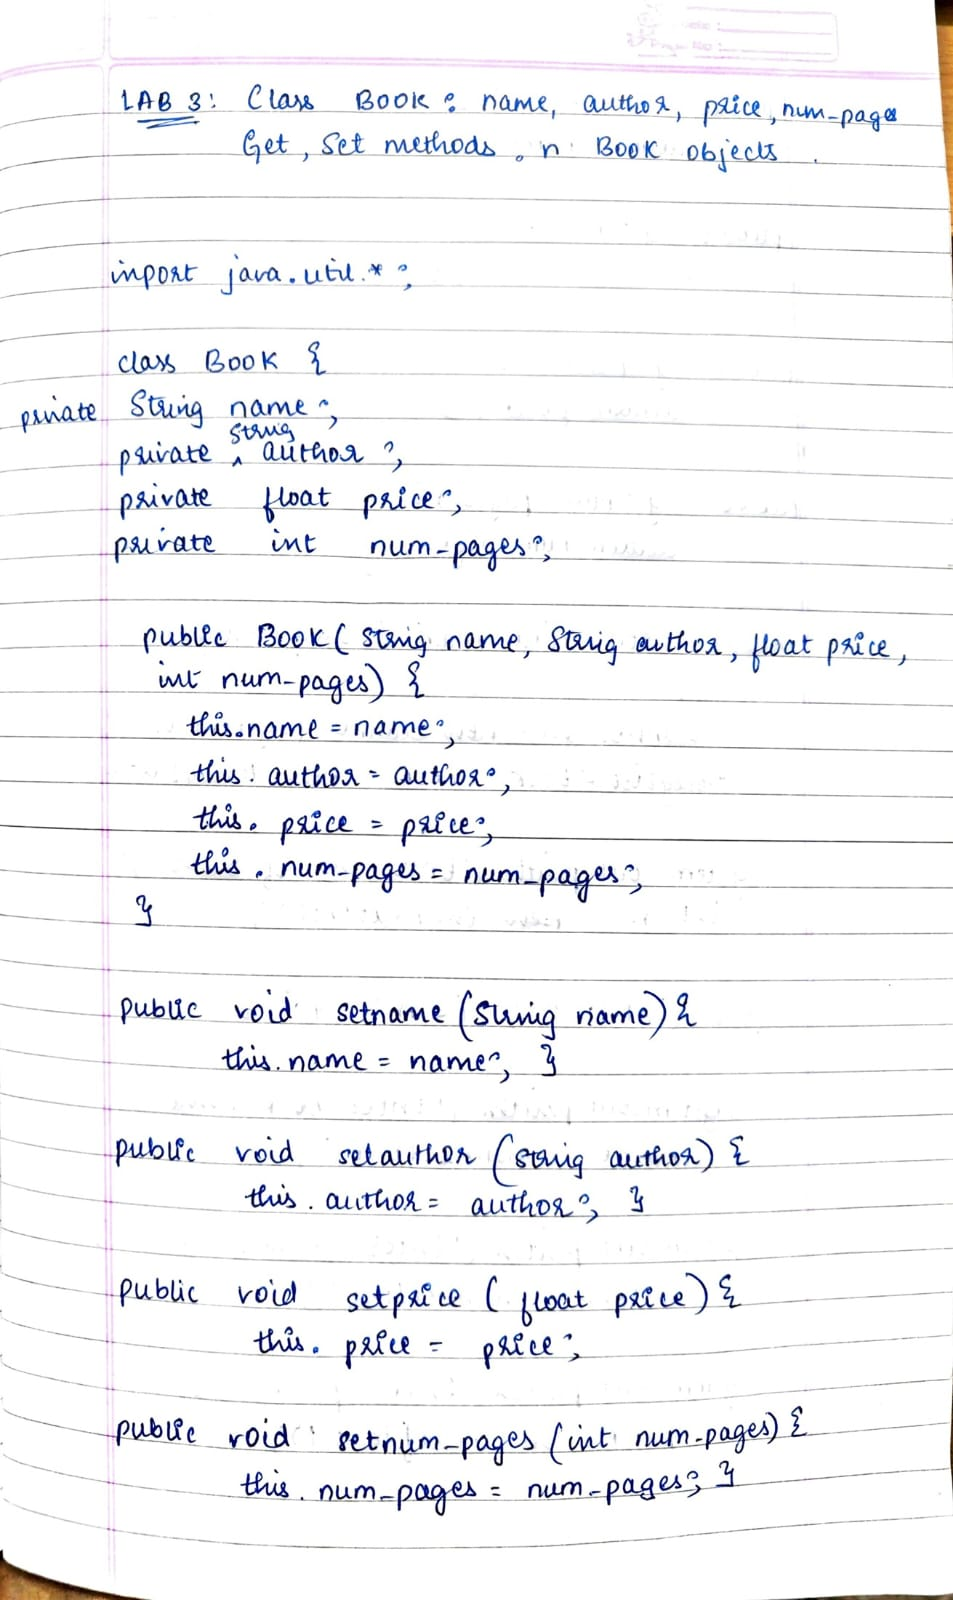 LAB 3: Class BOOK: name, author, price, num-pages
Get, Set methods. n BOOK objects.
import java.util.*;
class BOOK {
private String name;
private string author;
private float price;
private int num-pages;
public BOOK( string name, string author, float price,
int num-pages) {
this.name = name;
this.author = author;
this.price = price;
this.num-pages = num-pages;
}
public void setname (string name) {
this.name = name; }
public void setauthor (string author) {
this.author = author; }
public void setprice ( float price) {
this.price = price;
public void setnum-pages (int num-pages) {
this.num-pages = num-pages; }